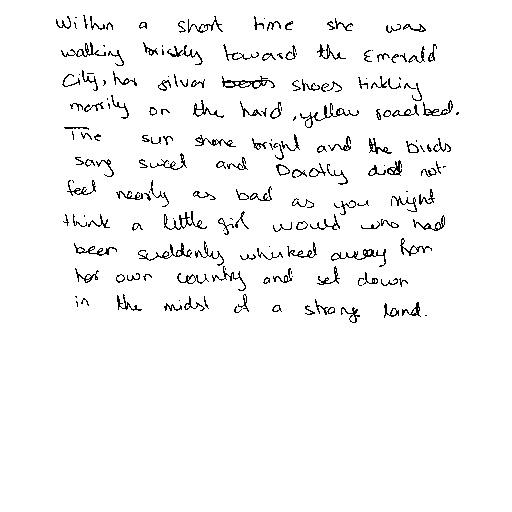 Within a short time she was
walking briskly toward the Emerald
City, her silver shoes tinkling
merrily on the hard, yellow roadbed.
The sun shone bright and the birds
sang sweet and Dorothy did not
feel nearly as bad as you might
think a little girl would who had
been suddenly whisked away from
her own country and set down
in the midst of a strange land.